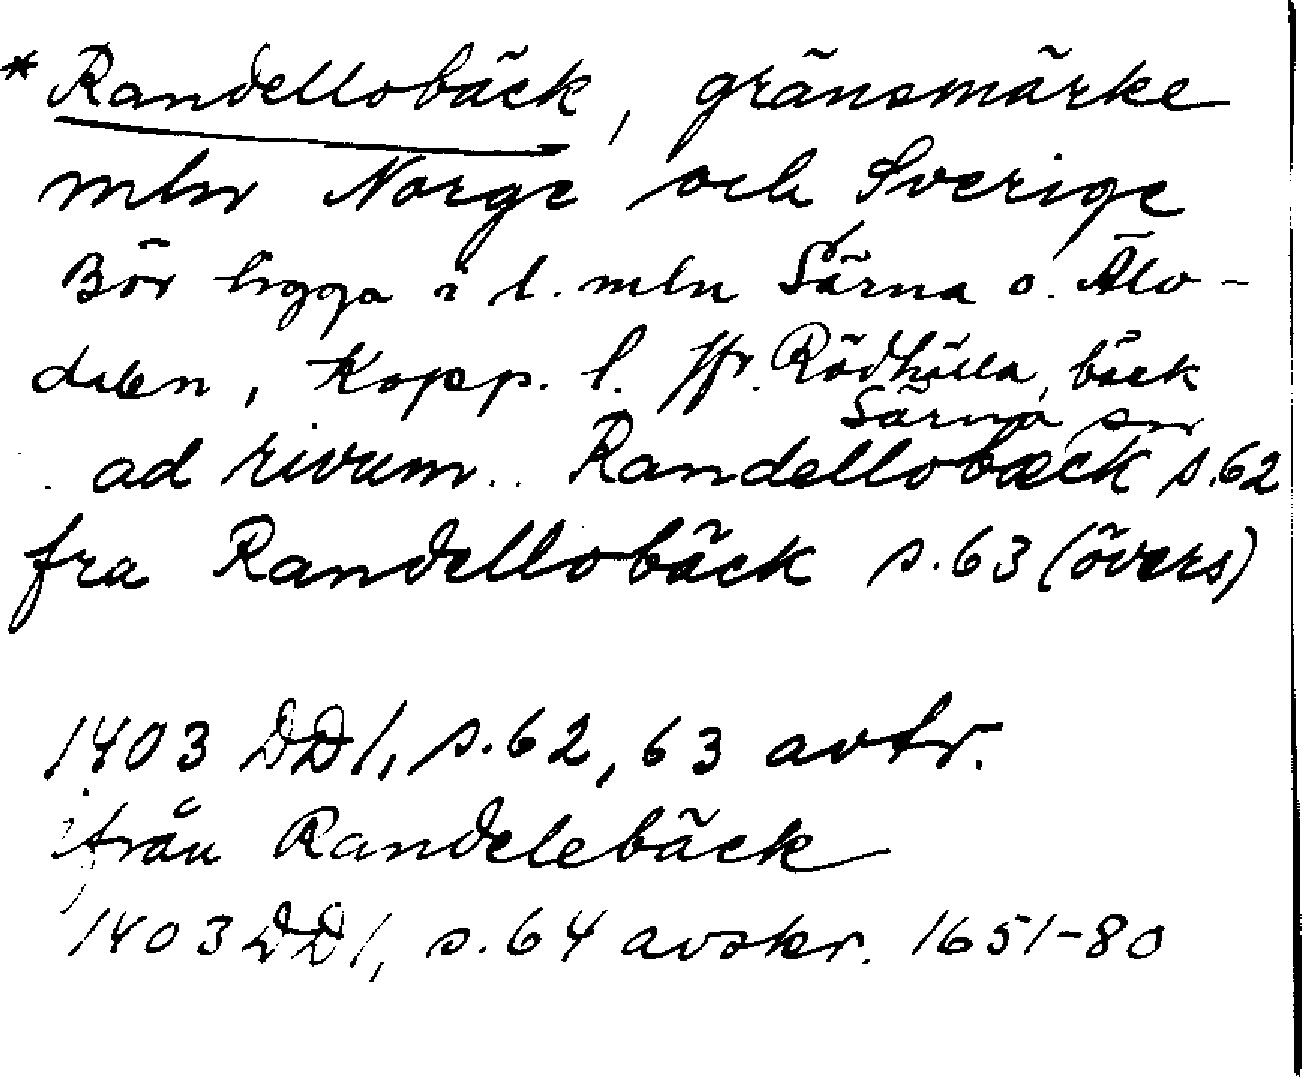 * Randellobäck, gränsmärke
mln Norge och Sverige
Bör ligga i l. mln Särna o. Älv-
dalen, Kopp. l. Jfr. Rödhälla, bäck
Särna sn
. ad rivum.. Randellobæck s.62
fra Randellobäck s.63 (övers)
1403 DD1, s.62, 63 avtr.
från Randelebäck
1403 DD1, s.64 avskr. 1651-80